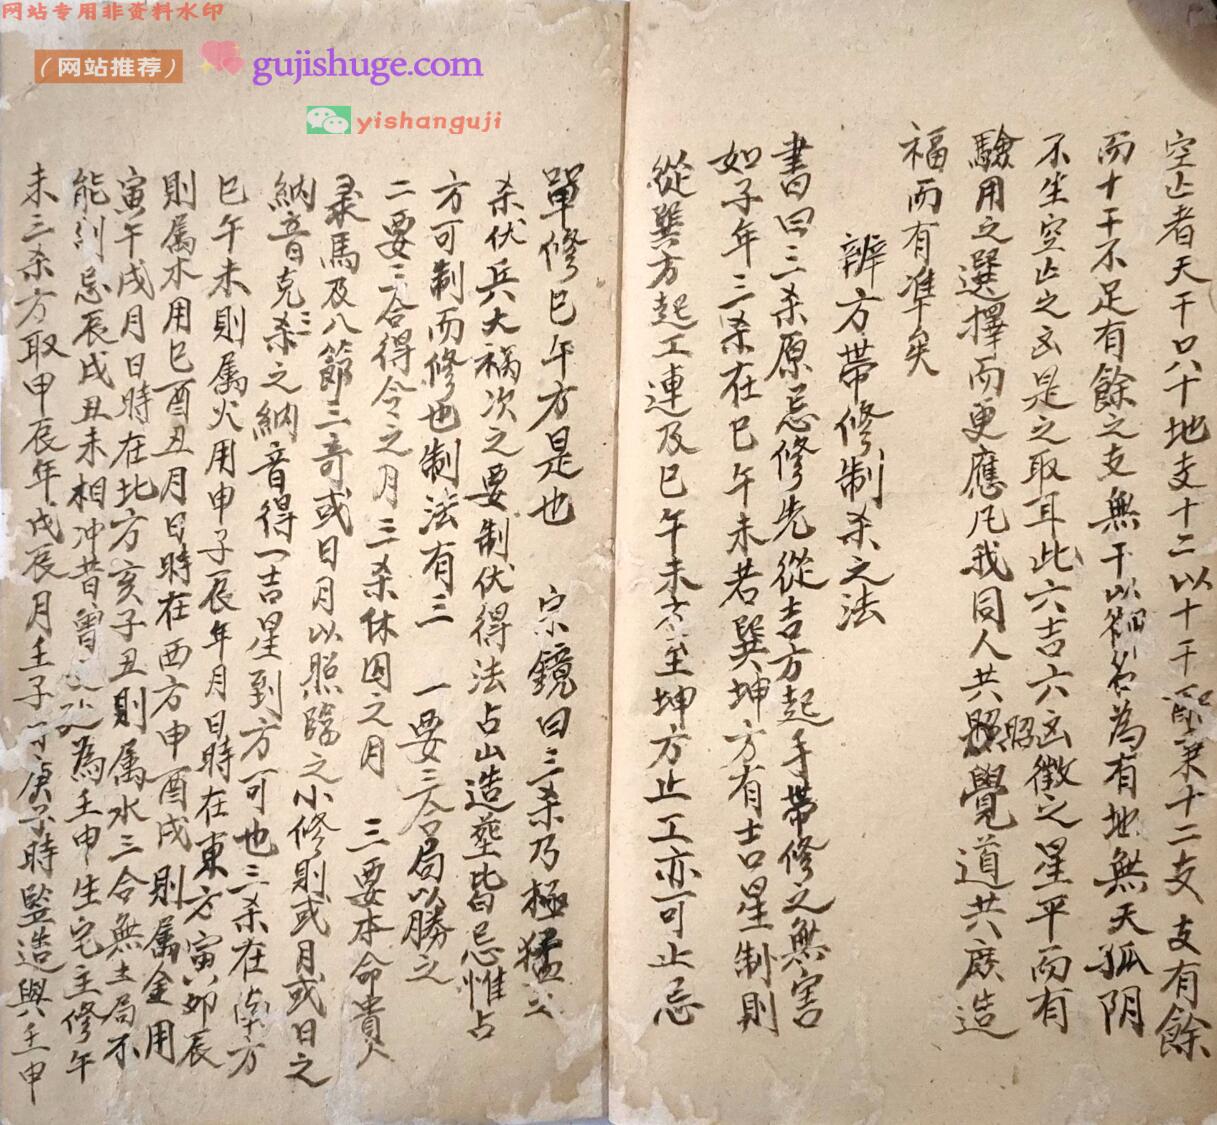 网站专用非资料水印
（网站推荐）
gujishuge.com
yishanguji
空亡者天干只八十地支十二以十干配兼十二支支有餘
而十干不足有餘之支無干以領名為有地無天孤陰
不生空亡之凶是之取耳此六吉六凶徵之星平而有
驗用之選擇而更應凡我同人共照覺道共庶造
照
福而有準矣
辨方帶修制杀之法
書曰三杀原忌修先從吉方起手帶修之無害
如子年三杀在巳午未若巽坤方有吉星制則
從巽方起工連及巳午未方至坤方止工亦可止忌
單修巳午方是也　宗鏡曰三杀乃極猛之
杀伏兵大禍次之要制伏得法占山造塟皆忌惟占
方可制而修也制法有三　一要三合局以勝之
二要三合得令之月三杀休囚之月　三要本命貴人
彔馬及八節三奇或日月以照臨之小修則或月或日之
納音克三杀之納音得一吉星到方可也三杀在南方
巳午未則属火用申子辰年月日時在東方寅卯辰
則属木用巳酉丑月日時在西方申酉戌則属金用
寅午戌月日時在北方亥子丑則属水三合無土局不
能制忌辰戌丑未相冲昔曾為壬申生宅主修午
未三杀方取甲辰年戊辰月壬子日庚子時監造與壬申